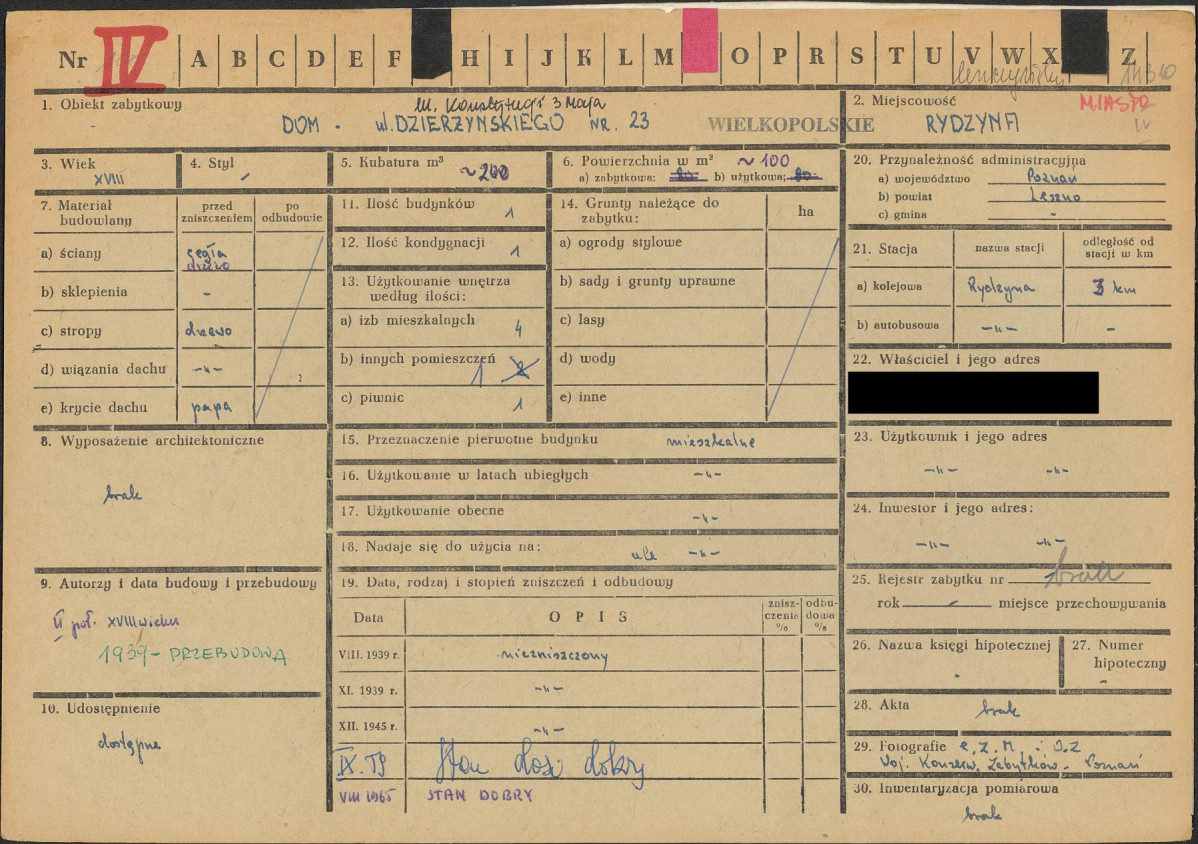 Nr IV A B C D E F H I J K L M O P R S T U V W X Z
1. Obiekt zabytkowy
ul. Konstytucji 3 Maja
DOM - ul. DZIERŻYŃSKIEGO NR. 23
WIELKOPOLSKIE
2. Miejscowość
MIASTO
RYDZYNA
IV
3. Wiek
XVIII
4. Styl
5. Kubatura m³
~200
6. Powierzchnia w m² ~100
a) zabytkowa: 80 b) użytkowa: 80
7. Materiał budowlany
przed zniszczeniem
po odbudowie
a) ściany cegła
drzewo
b) sklepienia -
c) stropy drzewo
d) wiązania dachu -„-
e) krycie dachu papa
8. Wyposażenie architektoniczne
brak
9. Autorzy i data budowy i przebudowy
II poł. XVIII wieku
1939 - PRZEBUDOWA
10. Udostępnienie
dostępne
11. Ilość budynków 1
12. Ilość kondygnacji 1
13. Użytkowanie wnętrza
według ilości:
a) izb mieszkalnych 4
b) innych pomieszczeń 1 2
c) piwnic 1
14. Grunty należące do
zabytku:
ha
a) ogrody stylowe
b) sady i grunty uprawne
c) lasy
d) wody
e) inne
15. Przeznaczenie pierwotne budynku mieszkalne
16. Użytkowanie w latach ubiegłych -„-
17. Użytkowanie obecne -„-
18. Nadaje się do użycia na: cele -„-
19. Data, rodzaj i stopień zniszczeń i odbudowy
Data
OPIS
znisz-
czenie
%
odbu-
dowa
%
VIII. 1939 r. niezniszczony
XI. 1939 r. -„-
XII. 1945 r. -„-
IX. 59 Stan dość dobry
VIII 1965 STAN DOBRY
20. Przynależność administracyjna
a) województwo Poznań
b) powiat Leszno
c) gmina -
21. Stacja
nazwa stacji
odległość od
stacji w km
a) kolejowa Rydzyna 3 km
b) autobusowa -„- -
22. Właściciel i jego adres
23. Użytkownik i jego adres
-„- -„-
24. Inwestor i jego adres:
-„- -„-
25. Rejestr zabytku nr brak
rok - miejsce przechowywania
26. Nazwa księgi hipotecznej
-
27. Numer
hipoteczny
-
28. Akta
brak
29. Fotografie
Woj. Konserw. Zabytków - Poznań
30. Inwentaryzacja pomiarowa
brak